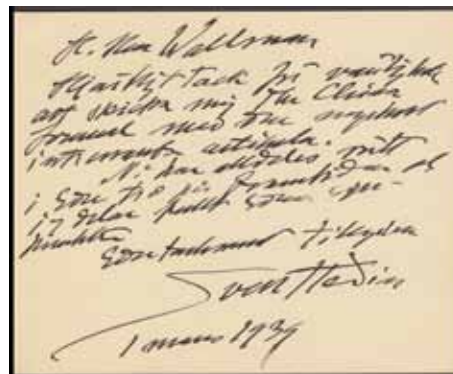 H. Herr Wallsman
Hjärtligt tack för vänligheten
att skicka mig The China
Journal med den mycket
intressanta artikeln.
Ni har alldeles rätt
i Eder tro på framtiden och
jag delar helt Edra
Eder tacksamt tillgifne
Sven Hedin
1 mars 1939